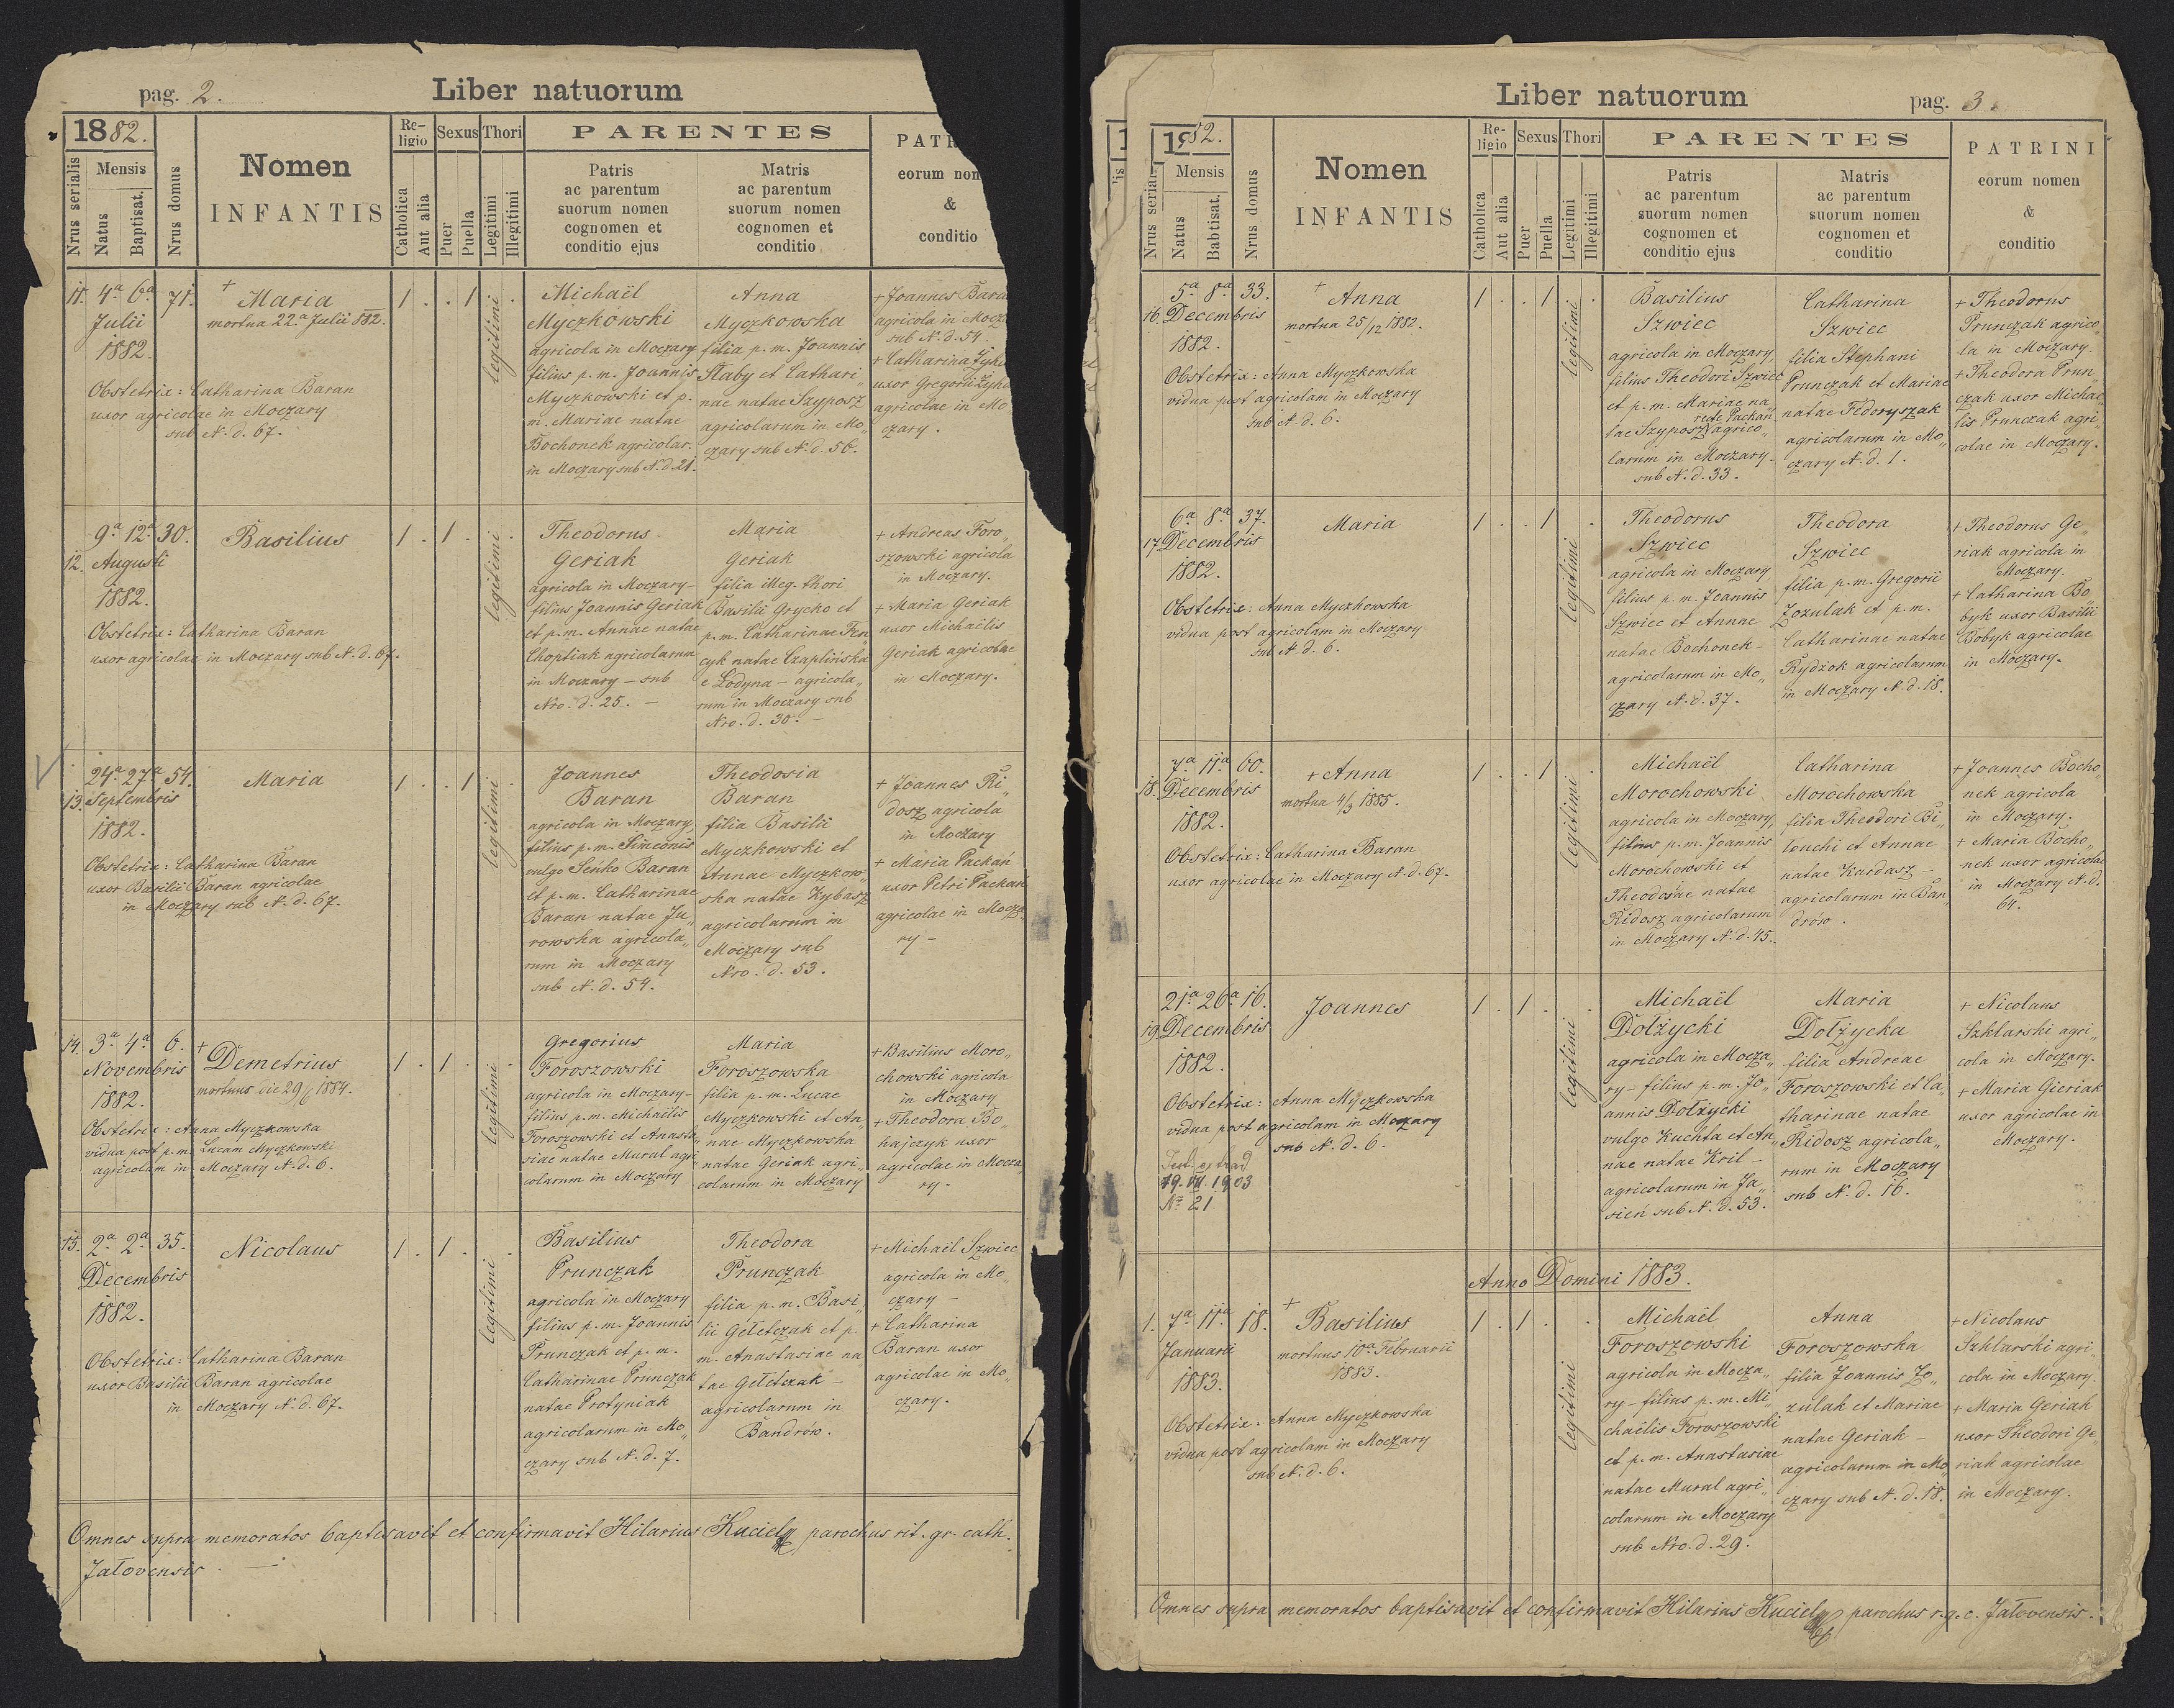 pag. 2.
Liber natuorum
1882.
Nrus serialis
Mensis
Natus
Baptisat.
Nrus domus
Nomen
INFANTIS
Re-
ligio
Catholica
Aut alia
Sexus
Puer
Puella
Thori
Legitimi
Illegitimi
PARENTES
Patris
ac parentum
suorum nomen
cognomen et
conditio ejus
Matris
ac parentum
suorum nomen
cognomen et
conditio
PATR
eorum nom
&
conditio
11. 4ª 6ª 71.
Julii
1882.
Obstetrix: Catharina Baran
uxor agricolae in Moczary
sub N. d. 67.
+ Maria
mortua 22ª Julii 882.
1 . . 1
legitimi
Michaël
Myczkowski
agricola in Moczary
filius p. m. Joannis
Myczkowski et p.
m. Mariae natae
Bochonek agricolar.
in Moczary sub N. d. 21.
Anna
Myczkowska
filia p. m. Joannis
Słaby et Cathari„
nae natae Szyposz
agricolarum in Mo„
czary sub N. d. 56.
+ Joannes Bara
agricola in Mocz
sub N. d. 54.
+ Catharina
uxor Gregorii
agricolae in Mo
czary.
12. 9ª 12ª 30.
Augusti
1882.
Obstetrix: Catharina Baran
uxor agricolae in Moczary sub N. d. 67.
Basilius
1 . 1 . .
legitimi
Theodorus
Geriak
agricola in Moczary-
filius Joannis Geriak
et p. m. Annae natae
Choptiak agricolarum
in Moczary - sub
Nro. d. 25. -
Maria
Geriak
filia illeg. thori
Basilii Grycko et
p. m. Catharinae Fen„
cyk natae Czaplińska
e Łodyna - agricola„
rum in Moczary sub
Nro. d. 30. -
+ Andreas Foro„
szowski agricola
in Moczary.
+ Maria Geriak
uxor Michaëlis
Geriak agricolae
in Moczary.
13. 24ª 27ª 54.
Septembris
1882.
Obstetrix: Catharina Baran
uxor Basilii Baran agricolae
in Moczary sub N. d. 67.
Maria
1 . . 1 .
legitimi
Joannes
Baran
agricola in Moczary,
filius p. m. Simeonis
vulgo Seńko Baran
et p. m. Catharinae
Baran natae Ju„
rowska agricola„
rum in Moczary
sub N. d. 54.
Theodosia
Baran
filia Basilii
Myczkowski et
Annae Myczkow„
ska natae Kybasz
agricolarum in
Moczary sub
Nro. d. 53.
+ Joannes Ri„
dosz agricola
in Moczary
+ Maria Packań
uxor Petri Packań
agricolae in Mocza„
ry -
14. 3ª 4ª 6.
Novembris
1882.
Obstetrix: Anna Myczkowska
vidua post p. m. Lucam Myczkowski
agricolam in Moczary N. d. 6.
+ Demetrius
mortuus die 29/6 1884.
1 . 1 . .
legitimi
Gregorius
Foroszowski
agricola in Moczary-
filius p. m. Michaëlis
Foroszowski et Anasta„
siae natae Mural agri„
colarum in Moczary
Maria
Foroszowska
filia p. m. Lucae
Myczkowski et An„
nae Myczkowska
natae Geriak agri„
colarum in Moczary
+ Basilius Moro„
chowski agricola
in Moczary
+ Theodora Bo„
hajczyk uxor
agricolae in Mocza„
ry -
15. 2ª 2ª 35.
Decembris
1882.
Obstetrix: Catharina Baran
uxor Basilii Baran agricolae
in Moczary N. d. 67.
Nicolaus
1 . 1 . .
legitimi
Basilius
Prunczak
agricola in Moczary
filius p. m. Joannis
Prunczak et p. m.
Catharinae Prunczak
natae Protyniak
agricolarum in Mo„
czary sub N. d. 7.
Theodora
Prunczak
filia p. m. Basi„
lii Gełetczak et p.
m. Anastasiae na„
tae Gełetczak -
agricolarum in
Bandrów.
+ Michaël Szwiec
agricola in Mo„
czary -
+ Catharina
Baran uxor
agricolae in Mo„
czary.
Omnes supra memoratos baptisavit et confirmavit Hilarius Kuciely parochus rit. gr. cath.
Jałovensis.
Liber natuorum
pag. 3.
1882.
Nrus serial.
Mensis
Natus
Babtisat.
Nrus domus
Nomen
INFANTIS
Re-
ligio
Catholica
Aut alia
Sexus
Puer
Puella
Thori
Legitimi
Illegitimi
PARENTES
Patris
ac parentum
suorum nomen
cognomen et
conditio ejus
Matris
ac parentum
suorum nomen
cognomen et
conditio
PATRINI
eorum nomen
&
conditio
16. 5ª 8ª 33.
Decembris
1882.
Obstetrix: Anna Myczkowska
vidua post agricolam in Moczary
sub N. d. 6.
+ Anna
mortua 25/12 1882.
1 . . 1 .
legitimi
Basilius
Szwiec
agricola in Moczary
filius Theodori Szwiec
et p. m. Mariae na„
recte Packań
tae Szyposz agrico„
larum in Moczary-
sub N. d. 33.
Catharina
Szwiec
filia Stephani
Prunczak et Mariae
natae Fedoryszak
agricolarum in Mo„
czary N. d. 1.
+ Theodorus
Prunczak agrico„
la in Moczary.
+ Theodora Prun„
czak uxor Michaë„
lis Prunczak agri„
colae in Moczary.
17. 6ª 8ª 37.
Decembris
1882.
Obstetrix: Anna Myczkowska
vidua post agricolam in Moczary
sub N. d. 6.
Maria
1 . . 1 .
legitimi
Theodorus
Szwiec
agricola in Moczary
filius p. m. Joannis
Szwiec et Annae
natae Bochonek-
agricolarum in Mo„
czary N. d. 37.
Theodora
Szwiec
filia p. m. Gregorii
Zozulak et p. m.
Catharinae natae
Rydzok agricolarum
in Moczary N. d. 18.
+ Theodorus Ge„
riak agricola in
Moczary.
+ Catharina Bo„
byk uxor Basilii
Bobyk agricolae
in Moczary.
18. 7ª 11ª 60.
Decembris
1882.
Obstetrix: Catharina Baran
uxor agricolae in Moczary N. d. 67.
+ Anna
mortua 4/3 1885.
1 . . 1 .
legitimi
Michaël
Morochowski
agricola in Moczary,
filius p. m. Joannis
Morochowski et
Theodosiae natae
Ridosz agricolarum
in Moczary N. d. 45.
Catharina
Morochowska
filia Theodori Bi„
louchi et Annae
natae Kardasz -
agricolarum in Ban„
drów.
+ Joannes Bocho„
nek agricola
in Moczary.
+ Maria Bocho„
nek uxor agricolae
in Moczary N. d.
64.
19. 21ª 26ª 16.
Decembris
1882.
Obstetrix: Anna Myczkowska
vidua post agricolam in Moczary
sub N. d. 6.
Test. extrad
19. VII. 1903
No 21
Joannes
1 . 1 . .
legitimi
Michaël
Dołżycki
agricola in Mocza„
ry - filius p. m. Jo„
annis Dołżycki
vulgo Kuchta et An„
nae natae Kril -
agricolarum in Ja„
sień sub N. d. 53.
Maria
Dołżycka
filia Andreae
Foroszowski et Ca„
tharinae natae
Ridosz agricola„
rum in Moczary
sub N. d. 16.
+ Nicolaus
Szklarski agri„
cola in Moczary.
+ Maria Gieriak
uxor agricolae in
Moczary.
Anno Domini 1883.
1. 7ª 11ª 18.
Januarii
1883.
Obstetrix: Anna Myczkowska
vidua post agricolam in Moczary
sub N. d. 6.
+ Basilius
mortuus 10ª Februarii
1883.
1 . 1 . .
legitimi
Michaël
Foroszowski
agricola in Mocza„
ry - filius p. m. Mi„
chaëlis Foroszowski
et p. m. Anastasiae
natae Mural agri„
colarum in Moczary
sub Nro. d. 29.
Anna
Foroszowska
filia Joannis Zo„
zulak et Mariae
natae Geriak -
agricolarum in Mo„
czary sub N. d. 18.
+ Nicolaus
Szklarski agri„
cola in Moczary.
+ Maria Geriak
uxor Theodori Ge„
riak agricolae
in Moczary.
Omnes supra memoratos baptisavit et confirmavit Hilarius Kuciely parochus r. g. c. Jałovensis.